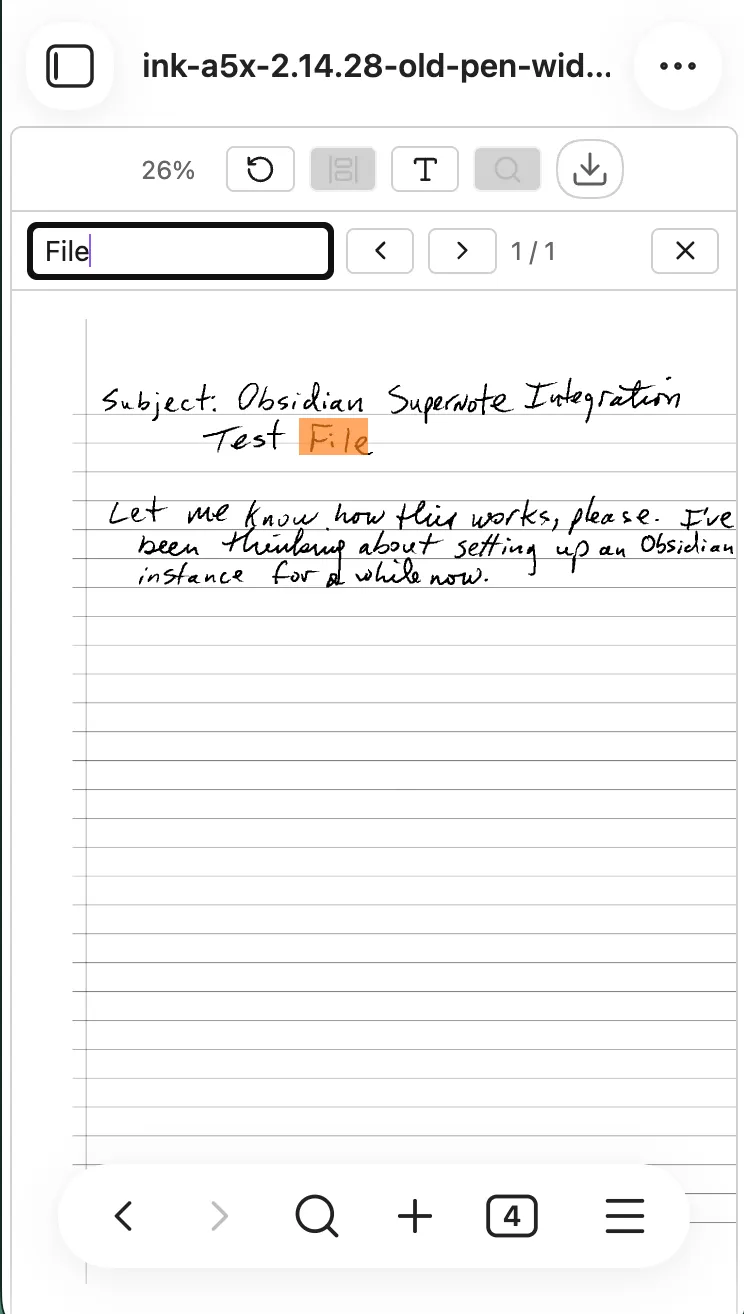 ink-a5x-2.14.28-old-pen-wid...
26%
T
File
1 / 1
Subject: Obsidian Supernote Integration
Test File
Let me know how this works, please. I've
been thinking about setting up an Obsidian
instance for a while now.
4